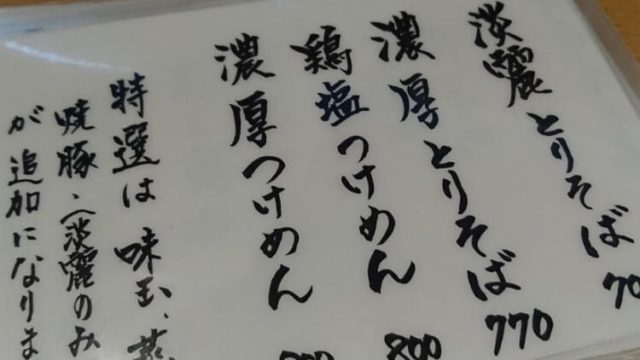 淡麗とりそば 70
濃厚とりそば 770
鶏塩つけめん 800
濃厚つけめん
特選は味玉、
焼豚、(淡麗のみ
が追加になりま